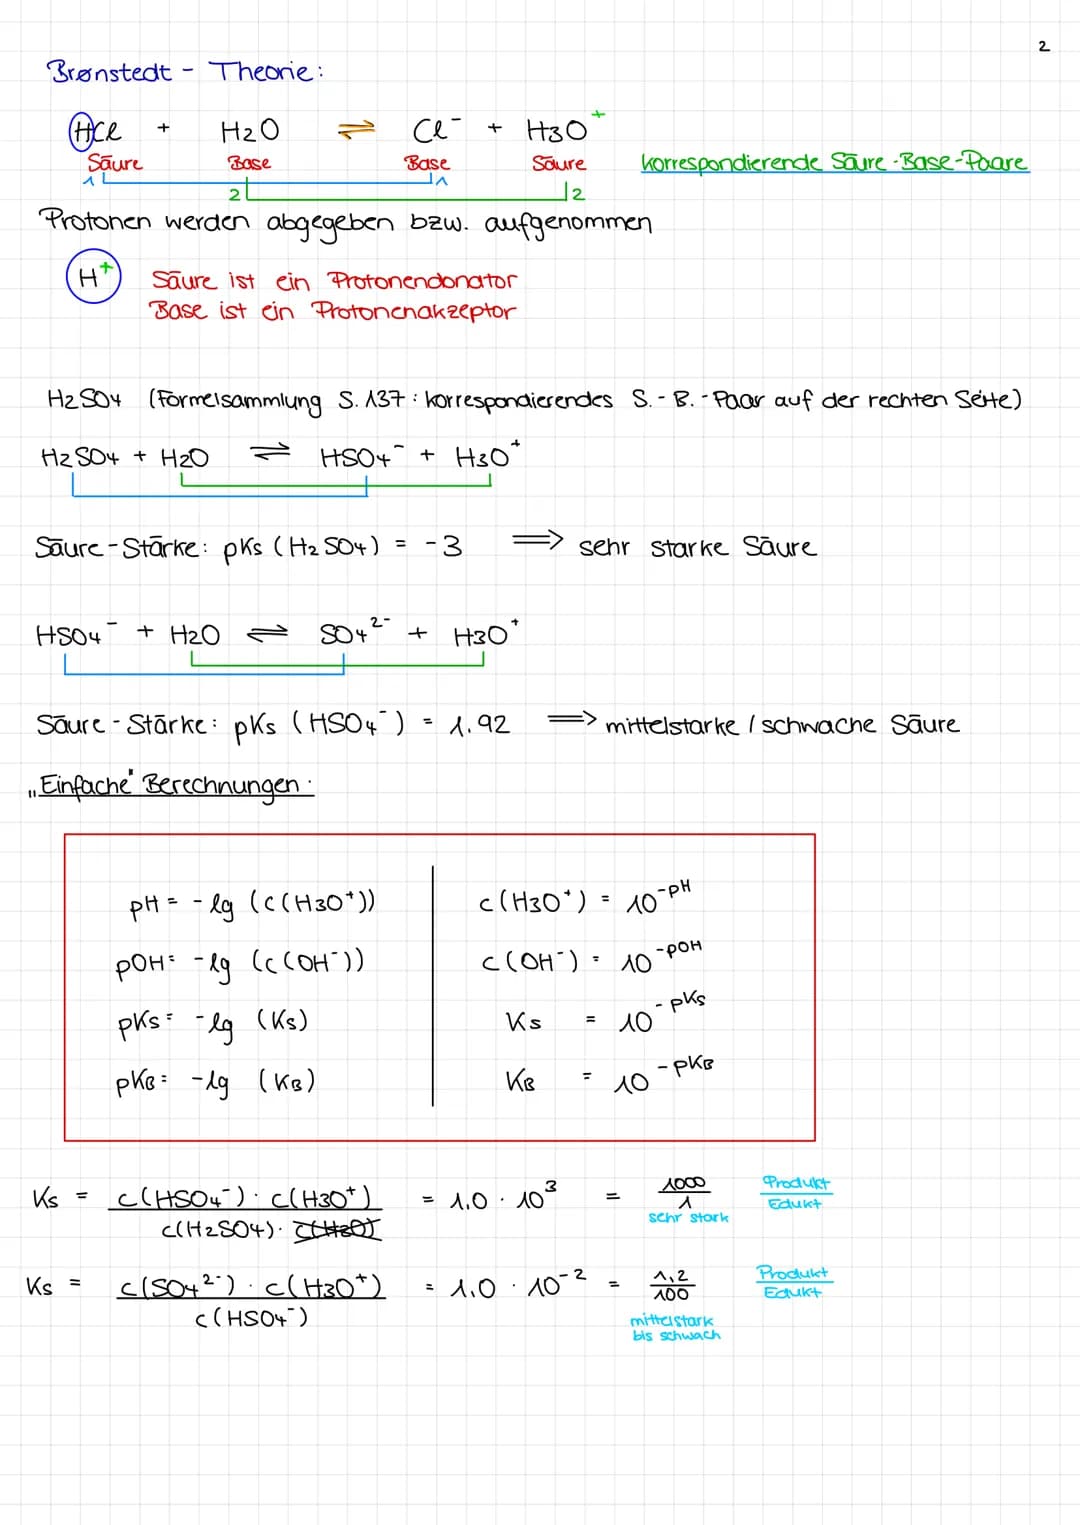 2
Brønstedt - Theorie:
HCl + H2O ⇌ Cl⁻ + H3O⁺
Säure Base Base Säure korrespondierende Säure-Base-Paare
1 1
2 2
Protonen werden abgegeben bzw. aufgenommen
H⁺ Säure ist ein Protonendonator
Base ist ein Protonenakzeptor
H2SO4 (Formelsammlung S. 137: korrespondierendes S.-B.-Paar auf der rechten Seite)
H2SO4 + H2O ⇌ HSO4⁻ + H3O⁺
Säure-Stärke: pKs (H2SO4) = -3 ⟹ sehr starke Säure
HSO4⁻ + H2O ⇌ SO4²⁻ + H3O⁺
Säure-Stärke: pKs (HSO4⁻) = 1.92 ⟹ mittelstarke / schwache Säure
„Einfache" Berechnungen:
pH = -lg (c(H3O⁺)) c(H3O⁺) = 10^-pH
pOH = -lg (c(OH⁻)) c(OH⁻) = 10^-pOH
pKs = -lg (Ks) Ks = 10^-pKs
pKB = -lg (KB) KB = 10^-pKB
Ks = c(HSO4⁻) · c(H3O⁺) / c(H2SO4) · c(H2O) = 1,0 · 10³ = 1000 / 1 Produkt / Edukt
sehr stark
Ks = c(SO4²⁻) · c(H3O⁺) / c(HSO4⁻) = 1,0 · 10⁻² = 1,2 / 100 Produkt / Edukt
mittelstark
bis schwach